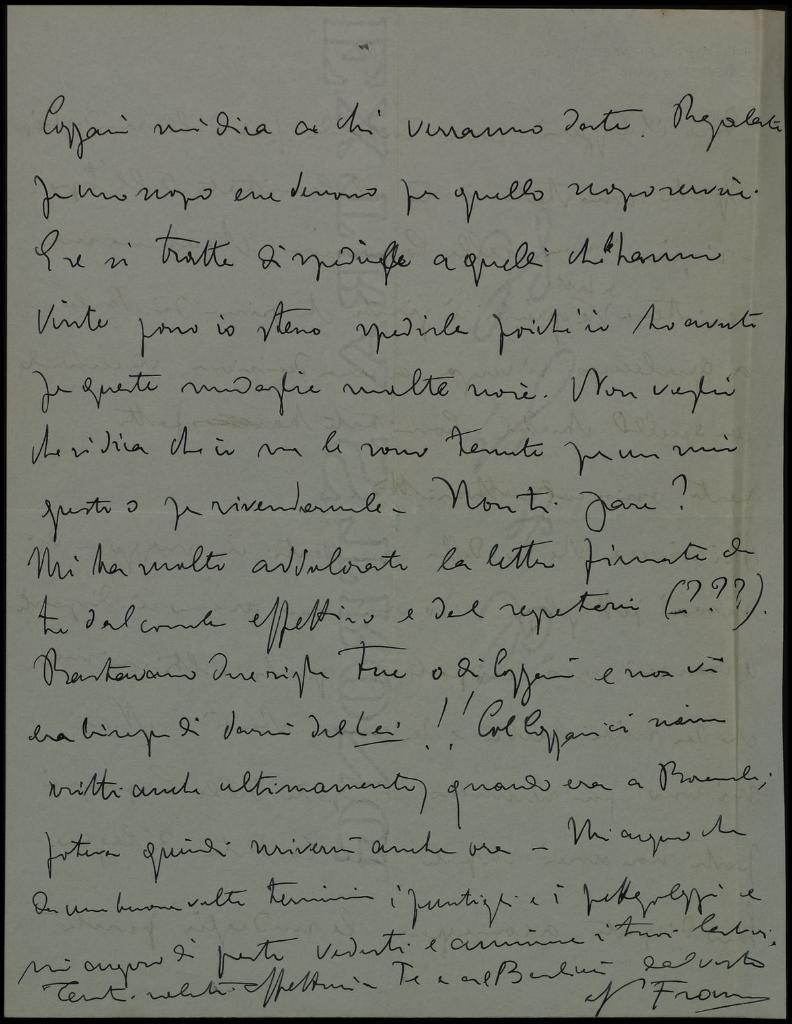 mi dica a chi verranno date. Regalate
per uno scopo e ne devono per quello scopo servire.
E se si tratta di spedirle a quelli che hanno
vinte posso io stesso spedirle poichè io ho avute
per queste medaglie molte noie. Non voglio
che si dica che io me le sono tenute per un mio
gusto o per rivendermele - Non ti pare?
Mi ha molto addolorato la lettera firmata da
te dal console effettivo e dal (???).
Bastavano due righe Tue o di e non vi
era bisogno di darmi del Lei!! Col ci siamo
scritti anche ultimamente, quando era a
poteva quindi scrivermi anche ora - Mi auguro che
da una buona volta terminino i puntigli e i pettegolezzi e
mi auguro di poterti vederti e ammirare i tuoi lavori.
Tanti saluti affettuosi a Te e al dal vostro